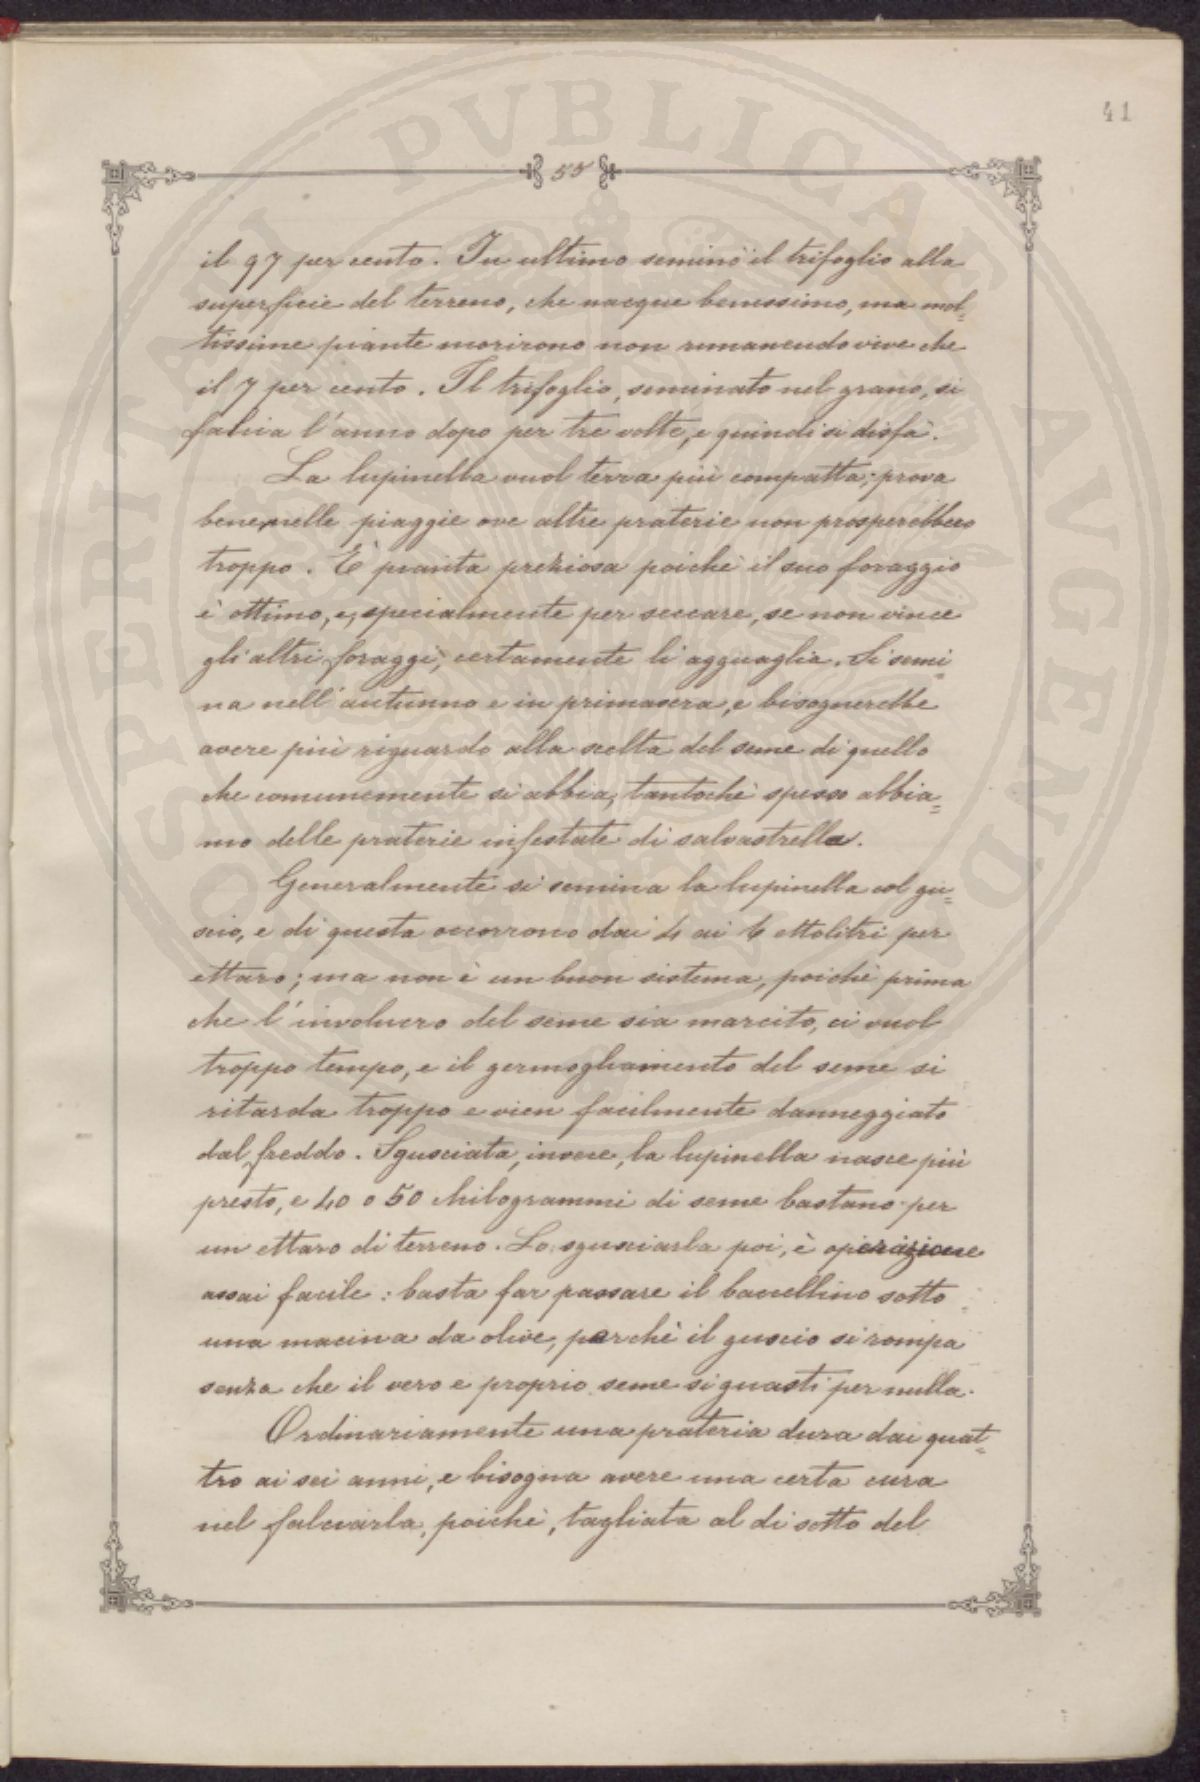 41
55
il 97 per cento. In ultimo seminò il trifoglio alla
superficie del terreno, che nacque benissimo, ma mol=
tissime piante morirono non rimanendo vive che
il 7 per cento. Il trifoglio, seminato nel grano, si
falcia l'anno dopo per tre volte, e quindi si disfà.
La lupinella vuol terra più compatta; prova
bene nelle piaggie ove altre praterie non prospererebbero
troppo. È pianta preziosa poichè il suo foraggio
è ottimo, e, specialmente per seccare, se non vince
gli altri foraggi, certamente li agguaglia. Si semi=
na nell'autunno e in primavera, e bisognerebbe
avere più riguardo alla scelta del seme di quello
che comunemente si abbia, tantochè spesso abbia=
mo delle praterie infestate di salvastrella.
Generalmente si semina la lupinella col gu=
scio, e di questa occorrono dai 4 ai 6 ettolitri per
ettaro; ma non è un buon sistema, poichè prima
che l'involucro del seme sia marcito, ci vuol
troppo tempo, e il germogliamento del seme si
ritarda troppo e vien facilmente danneggiato
dal freddo. Sgusciata, invece, la lupinella nasce più
presto, e 40 o 50 chilogrammi di seme bastano per
un ettaro di terreno. Lo sgusciarla poi, è operazione
assai facile: basta far passare il baccellino sotto
una macina da olive, perchè il guscio si rompa
senza che il vero e proprio seme si guasti per nulla.
Ordinariamente una prateria dura dai quat=
tro ai sei anni, e bisogna avere una certa cura
nel falciarla, poichè, tagliata al di sotto del